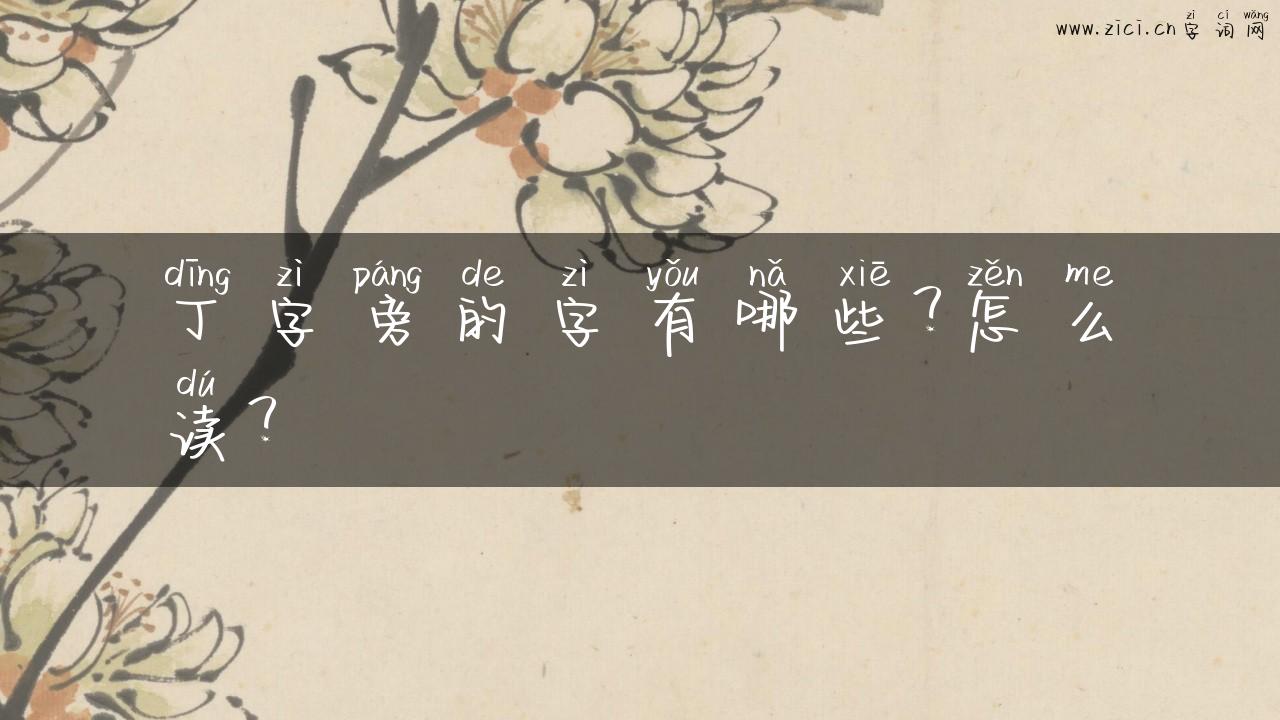 zì cí wǎng
www.zici.cn 字词网
dīng zì páng de zì yǒu nǎ xiē zěn me
丁字旁的字有哪些?怎么
dú
读?